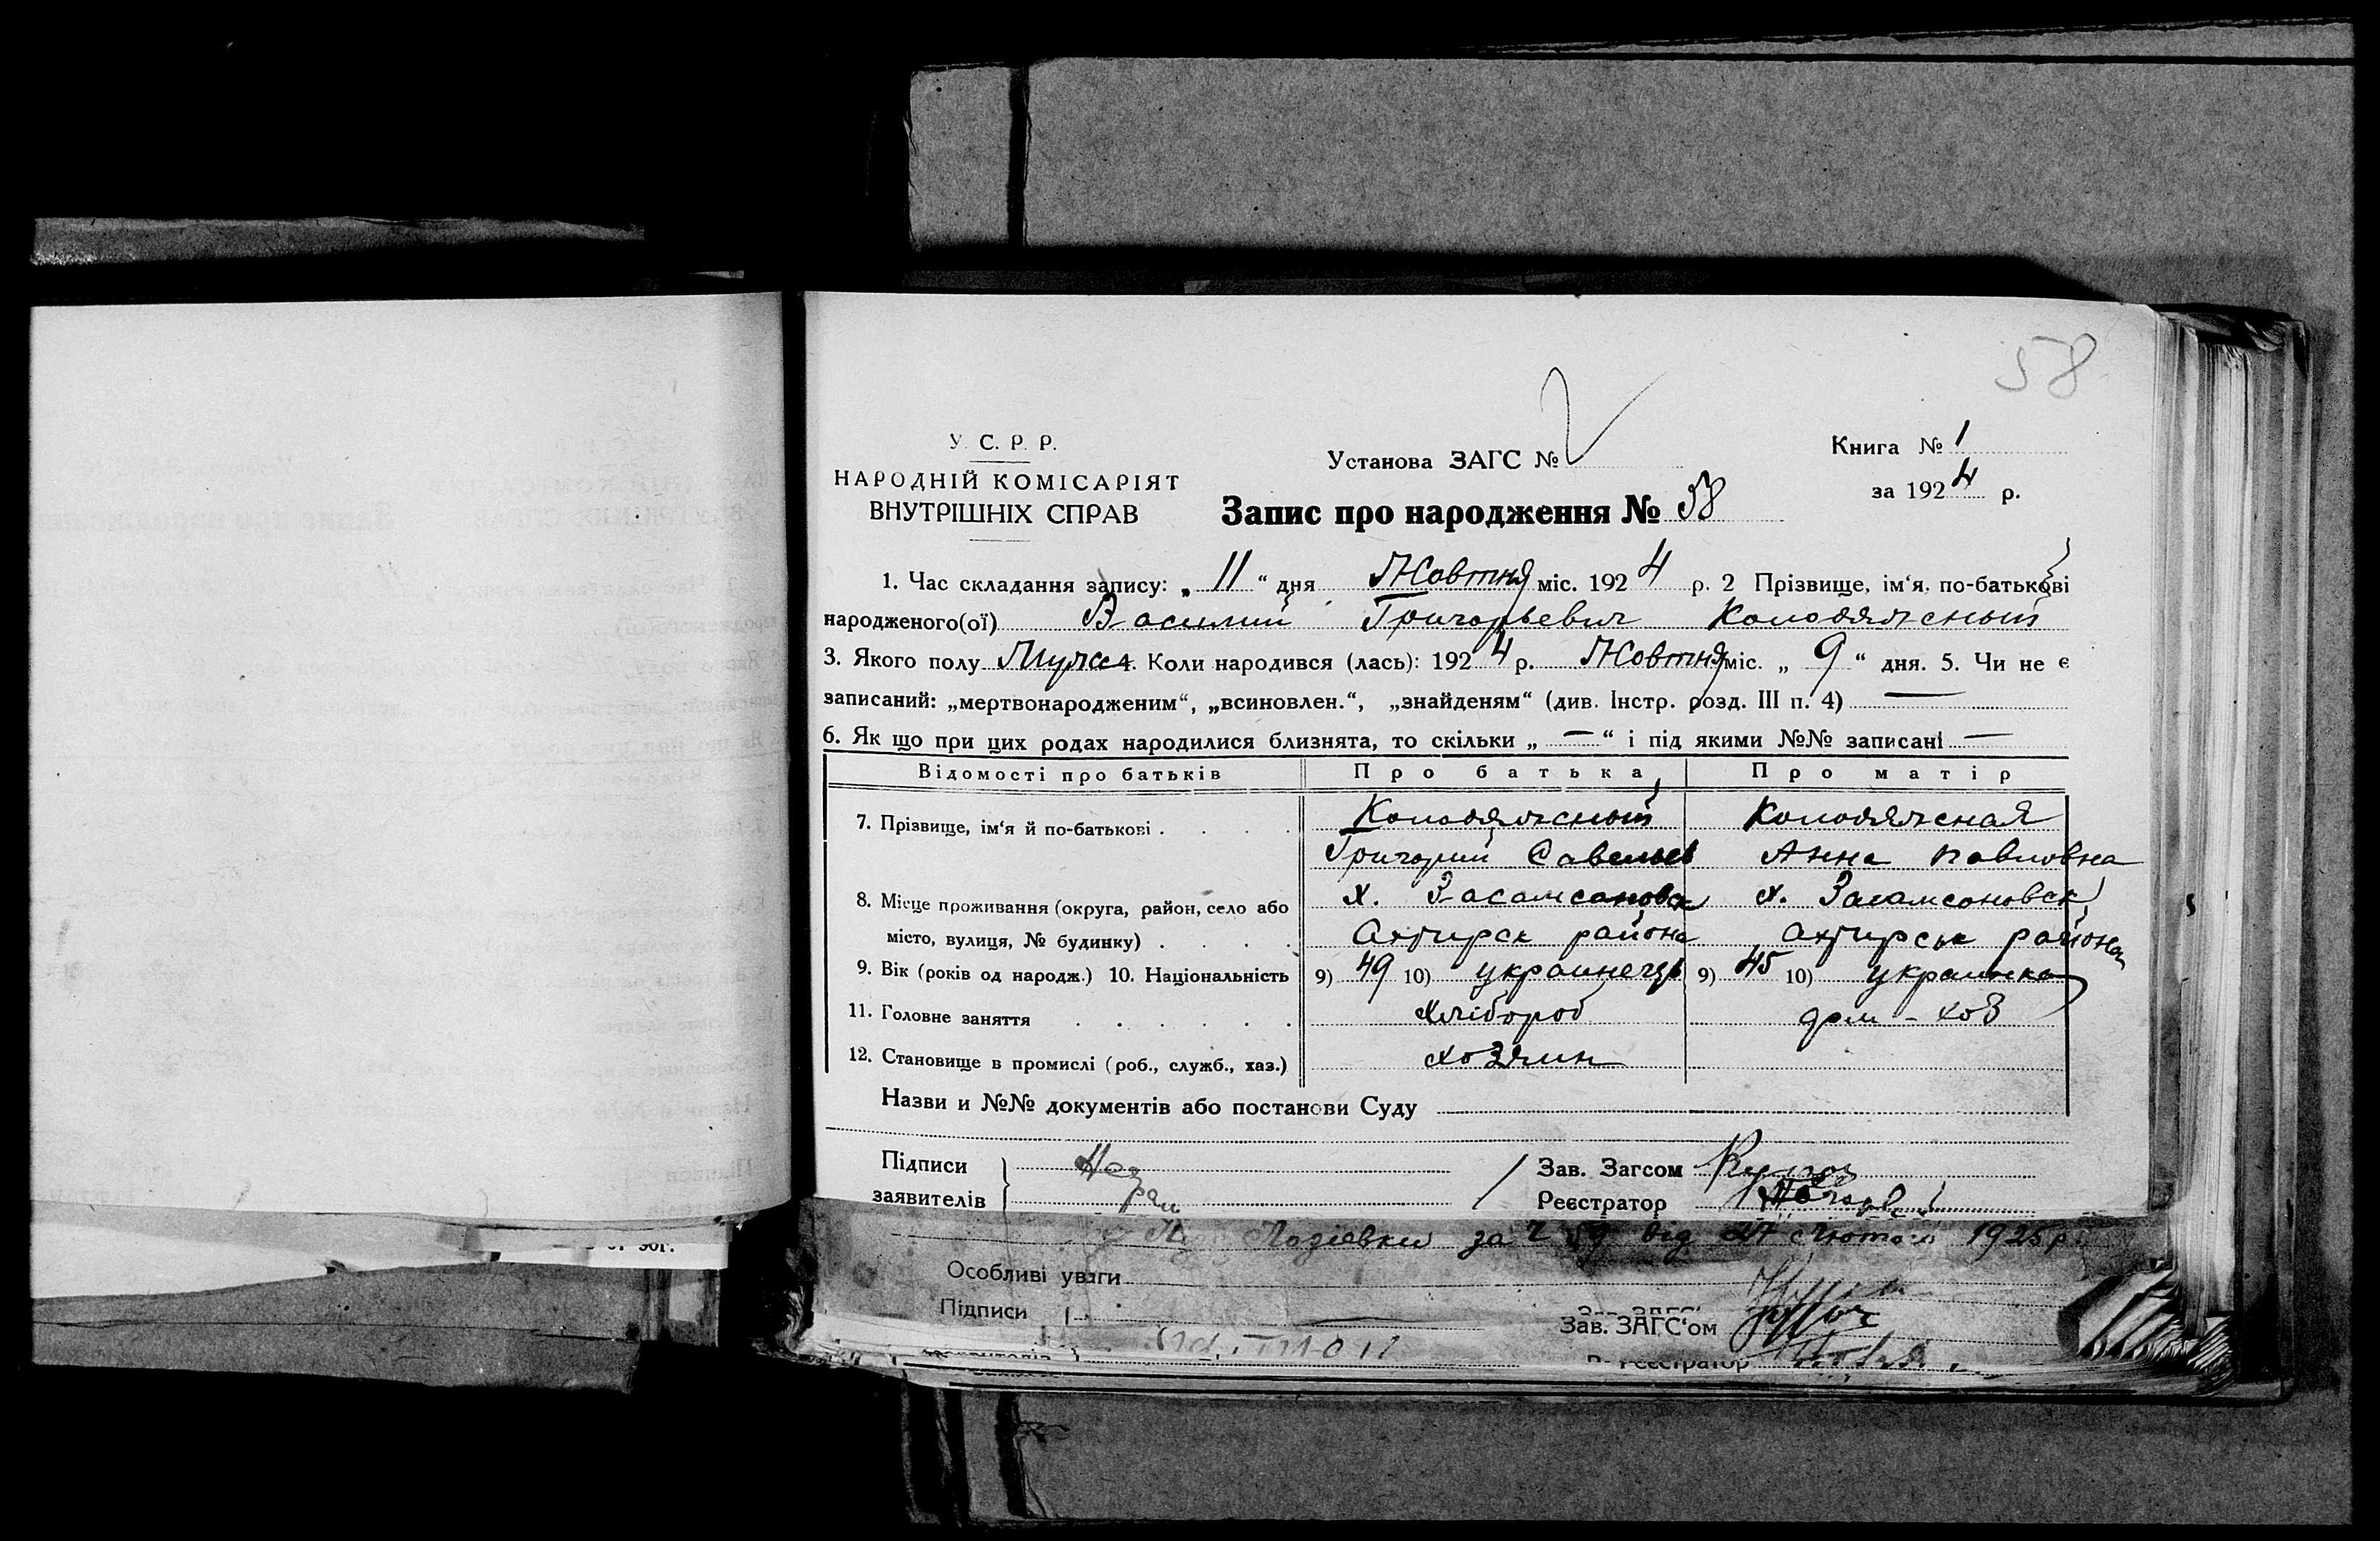 58
У. С. Р. Р.
НАРОДНІЙ КОМІСАРІЯТ
ВНУТРІШНІХ СПРАВ
Установа ЗАГС №
Книга № 1
за 1924 р.
Запис про народження № 58
1. Час складання запису: „ 11 “ дня Жовтня міс. 1924 р. 2 Прізвище, ім‘я, по-батькові
народженого(ої) Василий Григорьевич Колодяжный
3. Якого полу Мужс 4. Коли народився (лась): 1924 р. Жовтня міс. „ 9 “ дня. 5. Чи не є
записаний: „мертвонародженим“, „всиновлен.“, „знайденям“ (див. Інстр. розд. III п. 4) —
6. Як що при цих родах народилися близнята, то скільки „ — “ і під якими №№ записані —
Відомості про батьків Про батька Про матір
7. Прізвище, ім‘я й по-батькові . . . . Колодяжный Колодяжная
Григорий Савельев Анна Павловна
8. Місце проживання (округа, район, село або х. Х.
місто, вулиця, № будинку) . . . . Ахтирск района Ахтирськ района
9. Вік (років од народж.) 10. Національність 9) 49 10) украинець 9) 45 10) украинка
11. Головне заняття . . . . . . Хлібороб дом - хоз
12. Становище в промислі (роб., служб., хаз.) хозяин
Назви и №№ документів або постанови Суду
Підписи
заявителів
Зав. Загсом
Реєстратор
за від 27 Лютого 1925 р.
Особливі уваги
Підписи
Зав. ЗАГС‘ом
Реєстратор